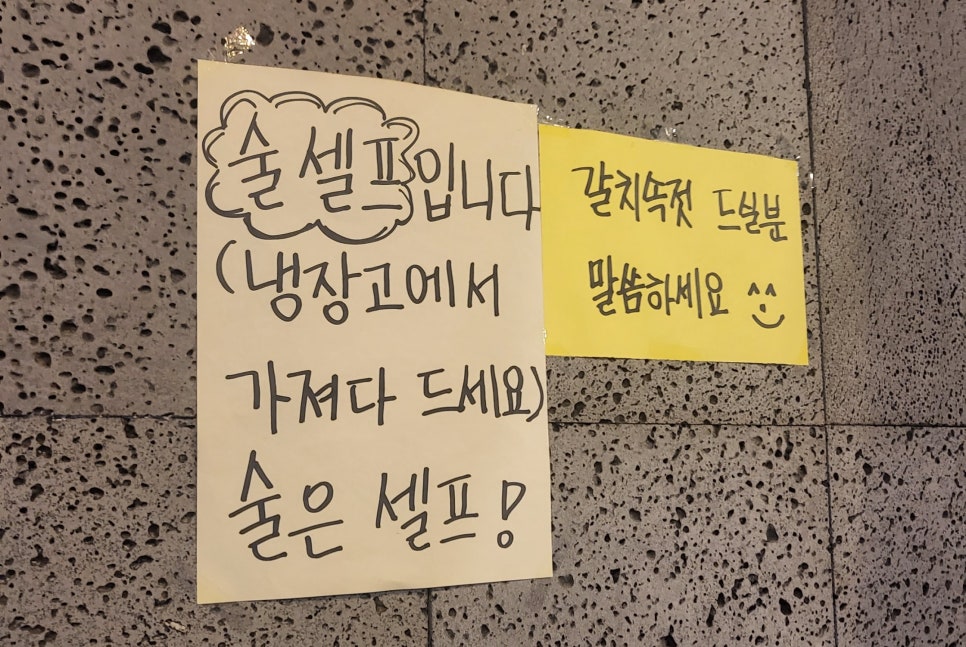 술 셀프입니다
(냉장고에서
가져다 드세요)
술은 셀프!
갈치속젓 드실분
말씀하세요